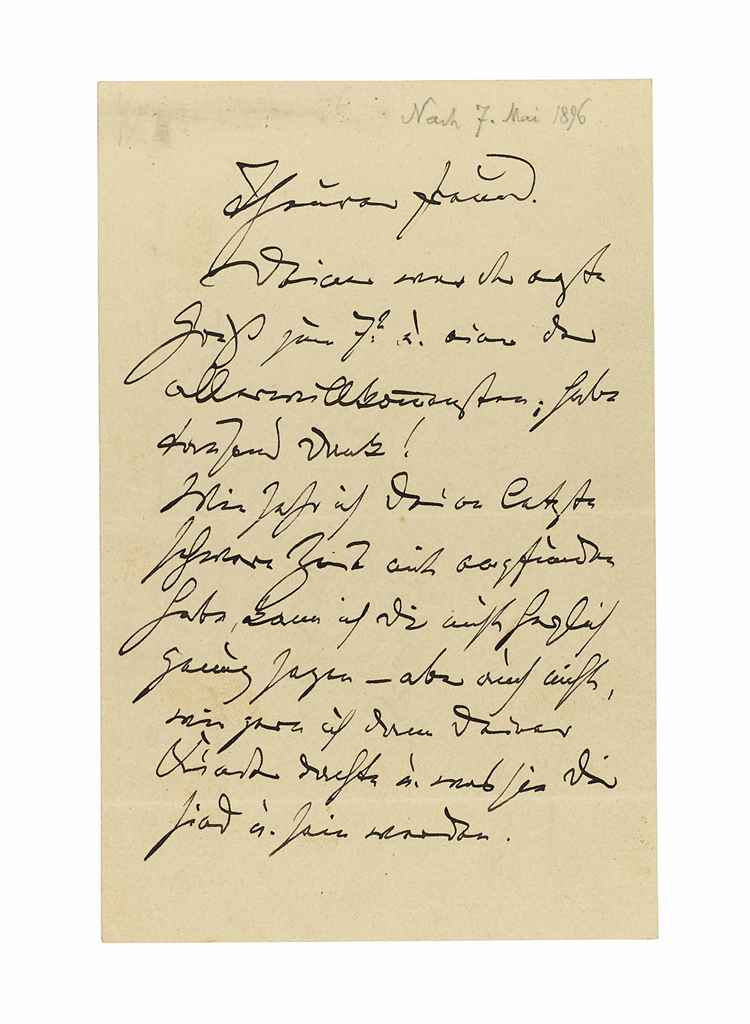 Nach 7. Mai 1896
Theurer Freund.
Deiner war der erste
Gruß zum 7t. u. einer der
allerwillkommensten; habe
tausend Dank!
Wie sehr ich Deine letzte
schwere Zeit mit empfunden
habe, kann ich Dir nicht herzlich
genug sagen – aber auch nicht,
wie gern ich dann Deiner
Kinder dachte u. was sie Dir
sind u. sein werden.